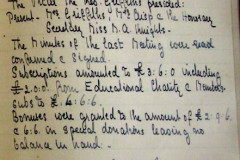 The Vicar The Rev. Griffiths presided:
Present. Mrs Griffiths. Mrs Crisp & the Honorary
Secretary Miss N. A. Knights.
The Minutes of the Last Meeting were read
confirmed & signed.
Subscriptions amounted to £3: 6: 0 including
£2. 0: 0. from Educational Charity & Members
subs to £. 6: 6.
Bonuses were granted to the amount of £2: 9. 6
& 6: 6. in special donations leaving no
balance in hand.